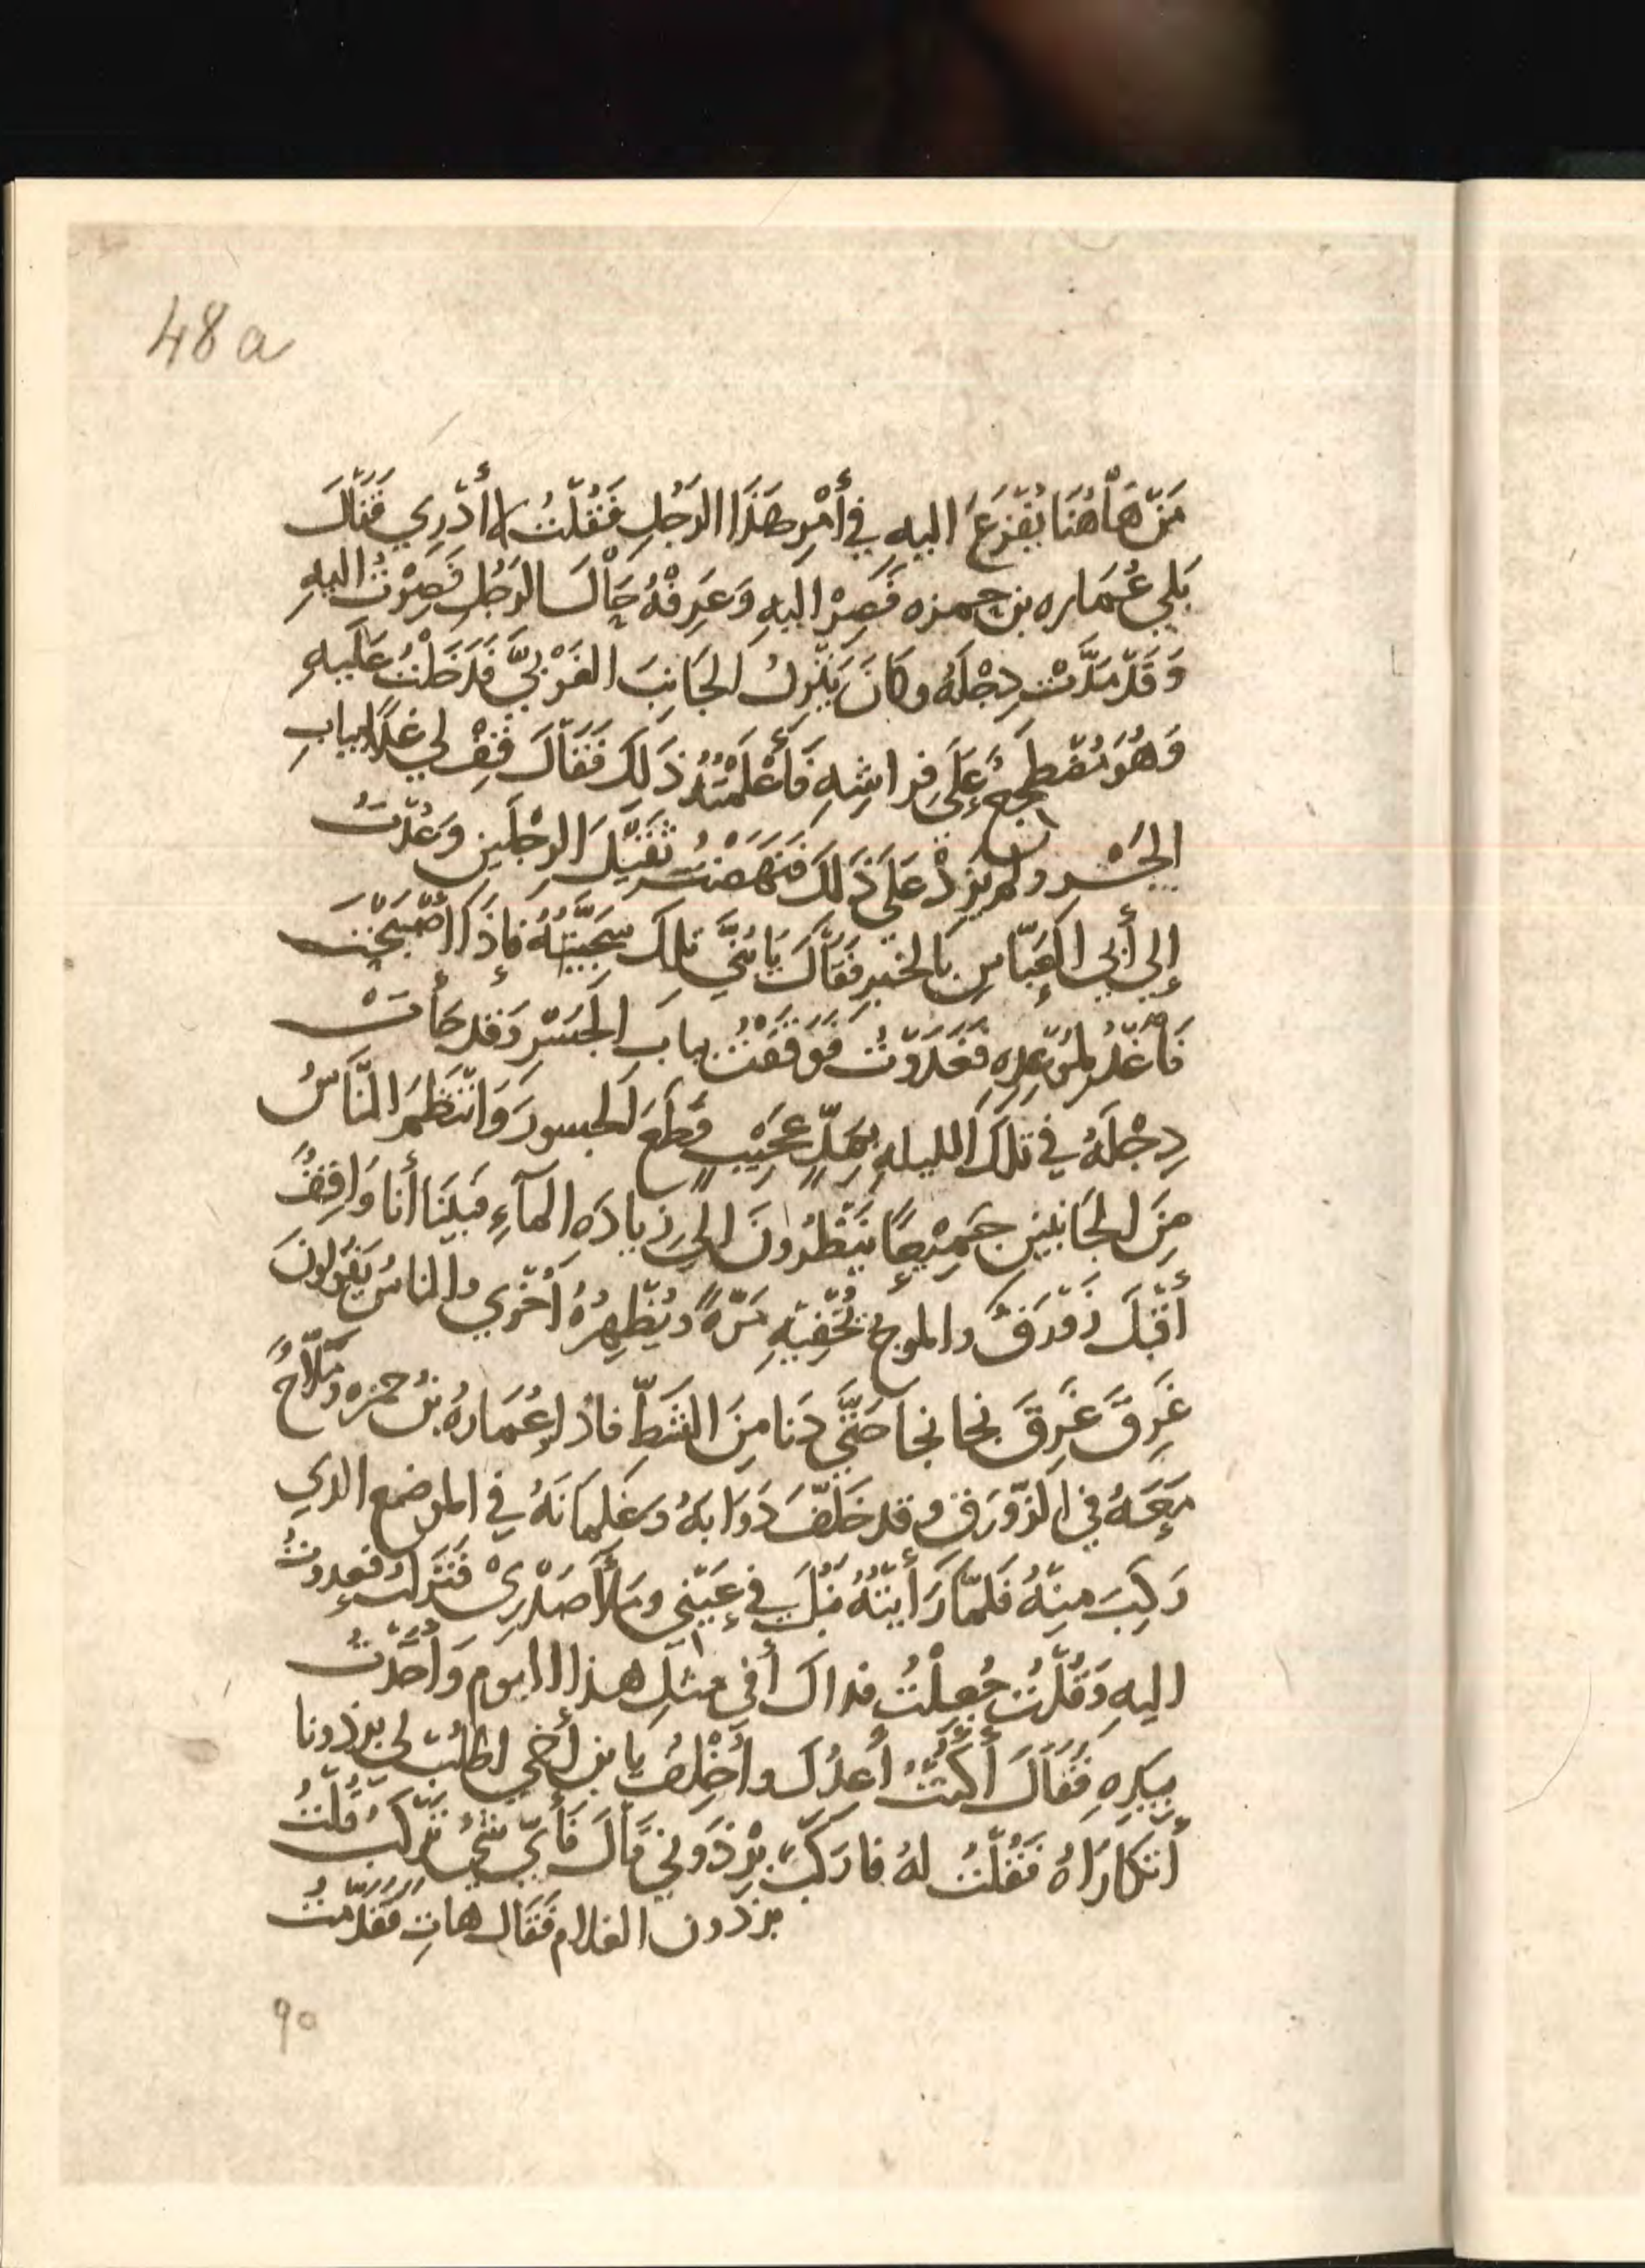 48a
مَنْ هَاهُنَا يُفْزَعُ اليهِ في أَمْرِ هَذَا الرَجُلِ فَقُلْتُ لا أَدْرِي فَقَالَ
بَلي عُمَاره بن حمزه فَصِرْ اليهِ وَعَرِفْهُ حَالَ الرَجُلِ فَصِرْتُ اليهِ
وَقَدْ مَدَّتْ دِجْلَهُ وكانَ يَنْزِلُ الجَانِبَ الغَرْبيَّ فَدَخَلْتُ عَلَيهِ
وَهُوَ مُضْطَجِعٌ عَلَى فِراشِهِ فَأَعْلَمْتُهُ ذَلِكَ فَقَالَ قِفْ لي غدًا ببابِ
الجَسْرِ ولم يَزِدْ عَلَى ذَلكَ فَنَهَضْتُ ثَقِيْلَ الرِجْلَينِ وَعُدْتُ
إلي أَبي العَبَّاسِ بالخبرِ فَقَالَ يَا بُنَيَّ تِلكَ سَجِيَّتُهُ فإذَا أَصْبَحْتَ
فَاغْدُ لمَوْعِدِهِ فَغَدَوْتُ فَوَقَفْتُ ببابِ الجَسْرِ وَقد جَأَتْ
دِجْلَهُ في تلكَ الليلهِ بِمَدٍّ عَجِيْبٍ قَطَعَ الجسورَ وَانْتَظَمَ النَّاسُ
مِنَ الجَانِبَينِ جَمِيْعًا يَنْظُرُونَ الي زِيادَه المآءِ فَبَيْنَا أنا وَاقِفٌ
أَقْبَلَ زَوْرَقٌ والموجُ تُخْفِيْهِ مَرَّةً ويُظْهِرُهُ أُخْرَي والناسُ يَقُولونَ
غَرِقَ غَرِقَ نجا نجا حَتَّي دَنا مِنَ الشَطِّ فاذا عُمَارهُ بنُ حمزه ومَلَّاحٌ
مَعَهُ في الزَّوْرَقِ وقد خَلَّفَ دَوَابهُ وَغِلمَانَهُ في الموضع الذي
رَكِبَ مِنْهُ فَلَمَّا رَأَيْتُهُ نَبُلَ في عَيْني ومَلأَ صَدْرِيْ فَنَزَلْتُ فعدوتُ
اليهِ وَقُلْتُ جُعِلْتُ فداكَ أفي مثلِ هذا اليوم وَأَخَذْتُ
بيَدِهِ فَقَالَ أَكُنْتُ أَعِدُكَ وأُخْلِفُ يا بن أَخي اطْلُبْ لي برذونا
أَتَكَارَاهُ فَقُلْتُ لهُ فارَكَبْ بِرْذَوْني قَالَ فَأَيَّ شَيْءٍ تَرْكَبُ قُلْتُ
برْذَون الغلام فَقَال هاتِ فَقَدَّمْتُ
90